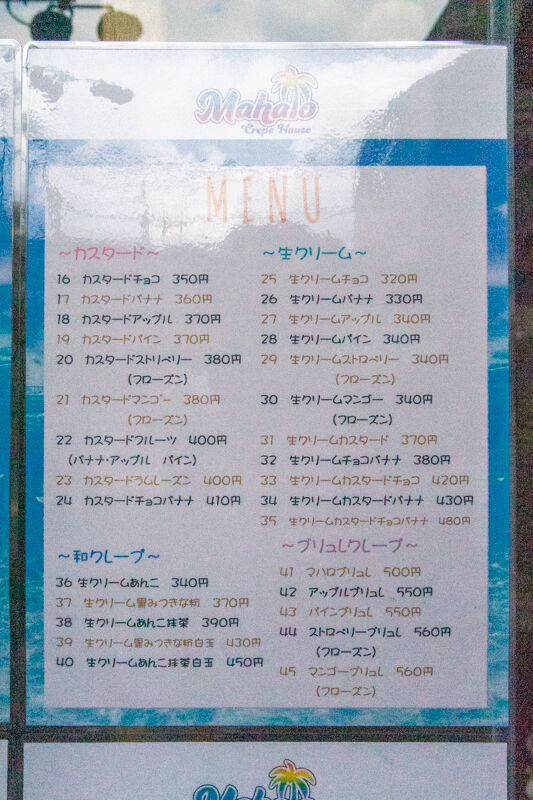 Mahalo
Crepe House
MENU
～カスタード～
16 カスタードチョコ 350円
17 カスタードバナナ 360円
18 カスタードアップル 370円
19 カスタードパイン 370円
20 カスタードストリベリー 380円
(フローズン)
21 カスタードマンゴー 380円
(フローズン)
22 カスタードフルーツ 400円
(バナナ・アップル パイン)
23 カスタードラムレーズン 400円
24 カスタードチョコバナナ 410円
～和クレープ～
36 生クリームあんこ 340円
37 生クリーム黒みつきな粉 370円
38 生クリームあんこ抹茶 390円
39 生クリーム黒みつきな粉白玉 430円
40 生クリームあんこ抹茶白玉 450円
～生クリーム～
25 生クリームチョコ 320円
26 生クリームバナナ 330円
27 生クリームアップル 340円
28 生クリームパイン 340円
29 生クリームストロベリー 340円
(フローズン)
30 生クリームマンゴー 340円
(フローズン)
31 生クリームカスタード 370円
32 生クリームチョコバナナ 380円
33 生クリームカスタードチョコ 420円
34 生クリームカスタードバナナ 430円
35 生クリームカスタードチョコバナナ 480円
～ブリュレクレープ～
41 マハロブリュレ 500円
42 アップルブリュレ 550円
43 パインブリュレ 550円
44 ストロベリーブリュレ 560円
(フローズン)
45 マンゴーブリュレ 560円
(フローズン)
Mahalo